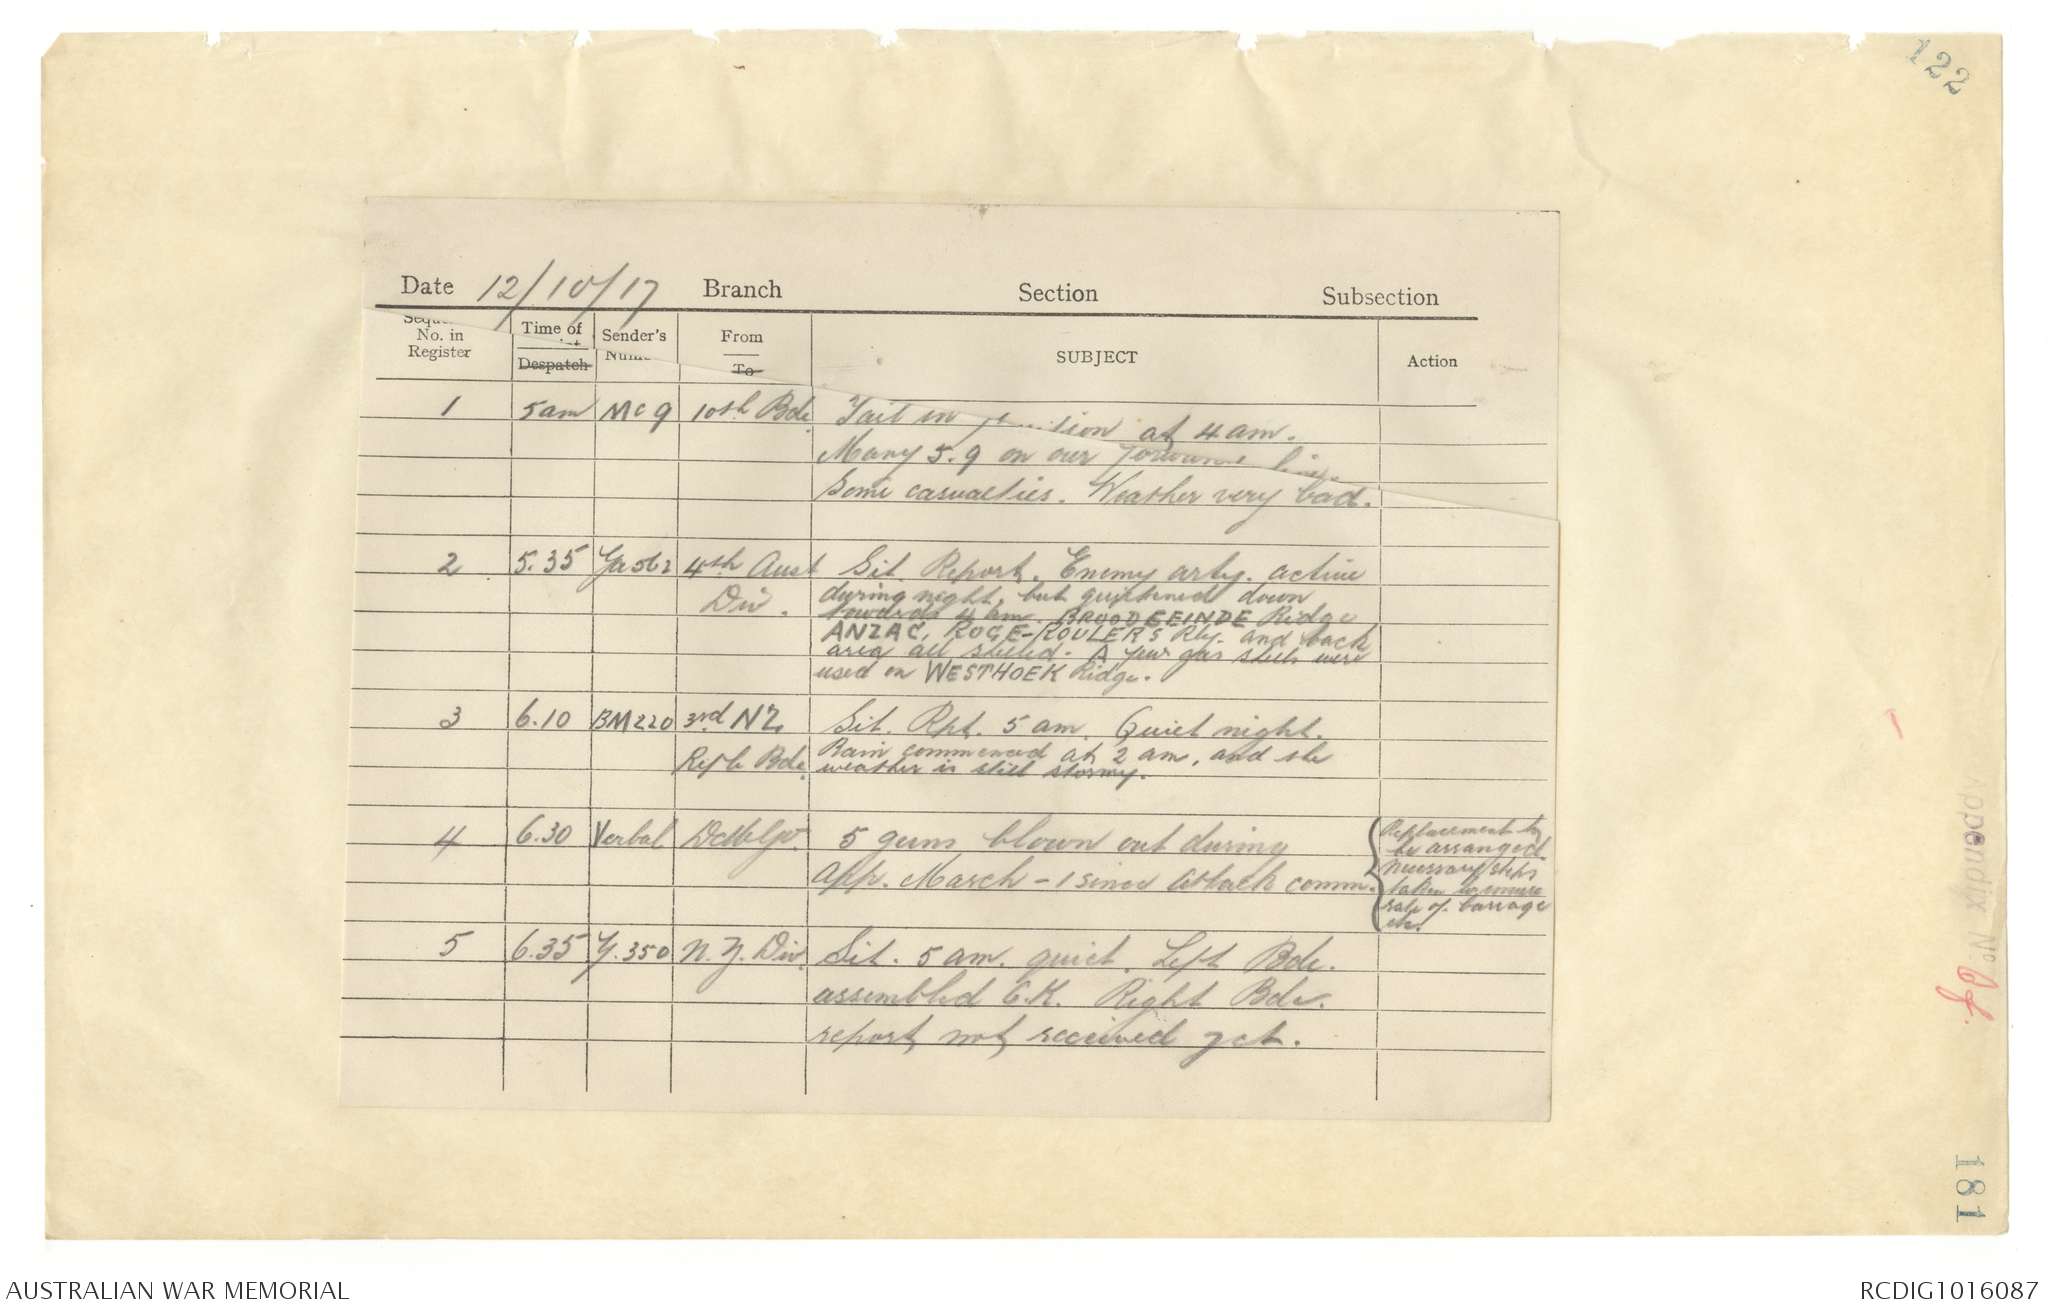 122
Date 12/10/17 Branch Section Subsection
No. in
Register
Time of
Despatch
Sender's
From
To
SUBJECT
Action
1 5 am Mc 9 10th Bde. Tail in at 4 am.
Many 5.9 on our
Some casualties. Weather very bad.
2 5.35 Ga 562 4th Aust Div. Sit. Report. Enemy arty. active
during night, but quietened down
towards 4 am. BROODSEINDE Ridge
ANZAC, ROUGE-ROULERS Rly. and back
area all shelled. A few gas shells were
used on WESTHOEK Ridge.
3 6.10 BM220 3rd NZ Rifle Bde. Sit. Rpt. 5 am. Quiet night.
Rain commenced at 2 am, and the
weather is still stormy.
4 6.30 Verbal 5 guns blown out during
App. March - 1 since attack comm.
Replacement to
be arranged.
Necessary steps
taken to ensure
rate of barrage
etc.
5 6.35 G.350 N.Z. Div. Sit. 5 am. quiet. Left Bde.
assembled O.K. Right Bde.
report not received yet.
Appendix No.
181
AUSTRALIAN WAR MEMORIAL
RCDIG1016087